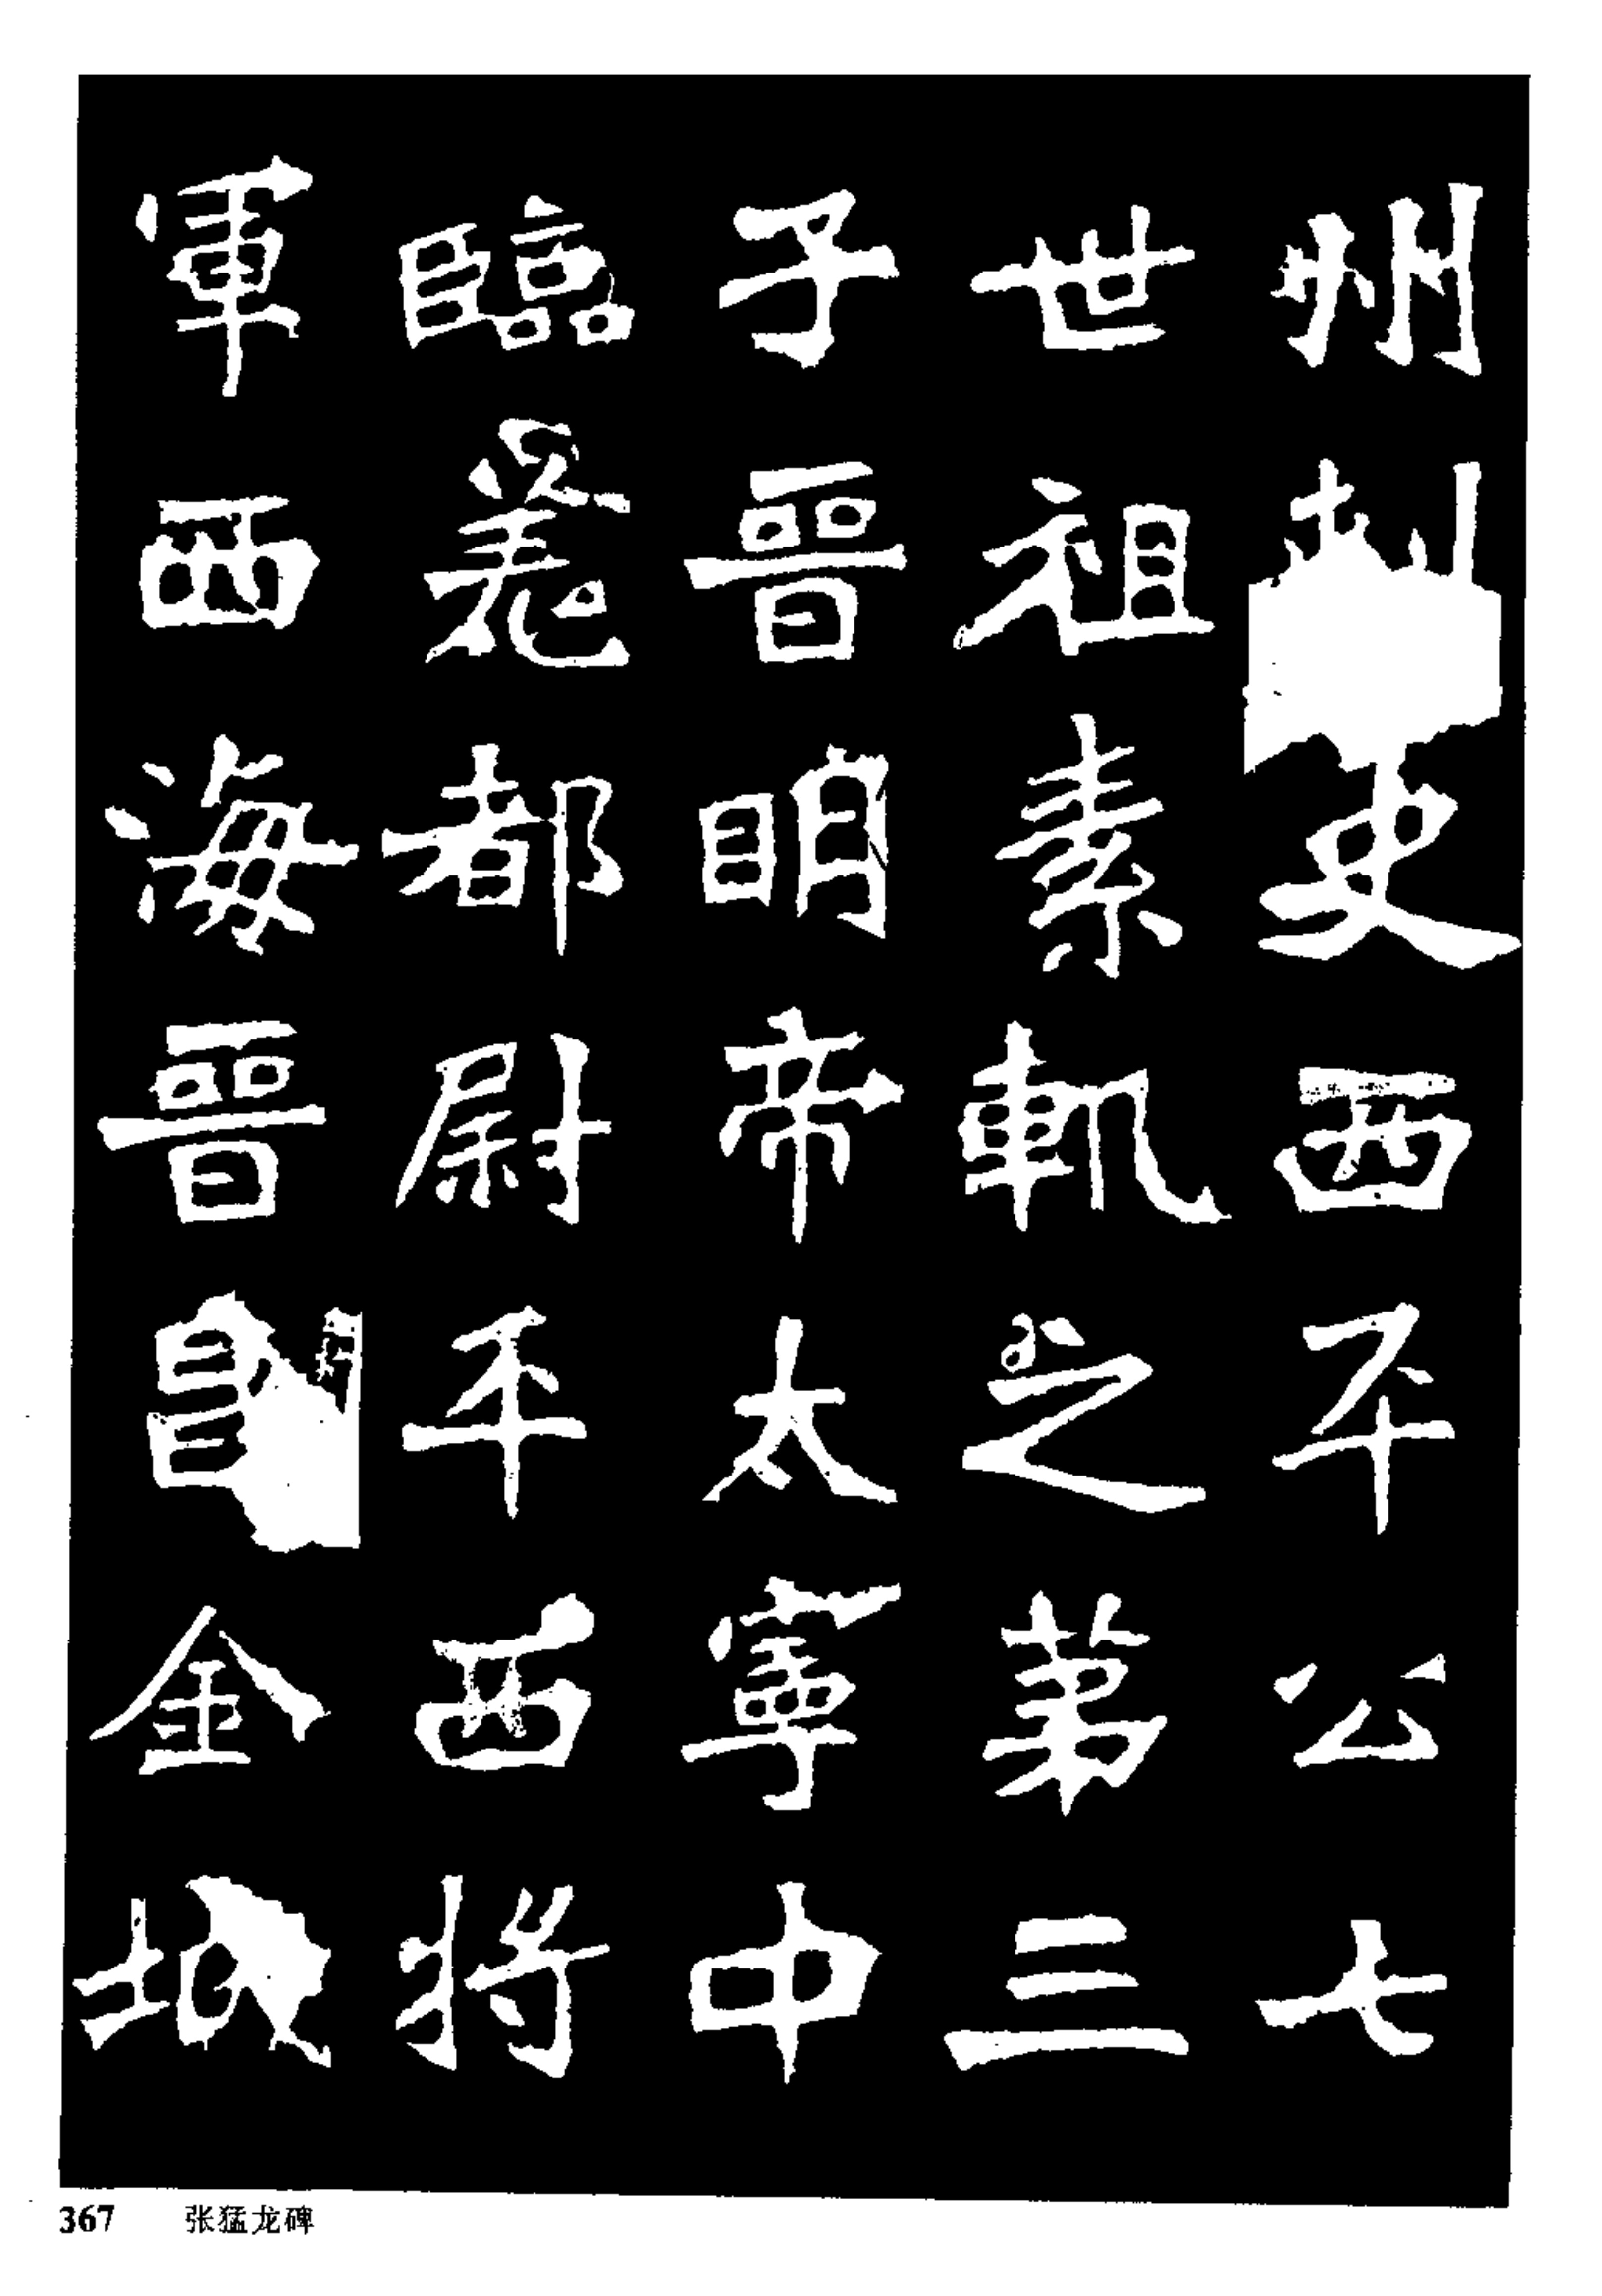 州刺史西平公七
世祖素軌之第三
子晉明帝太寧中
臨羌都尉平西將
軍西海晉昌金城
367 张猛龙碑